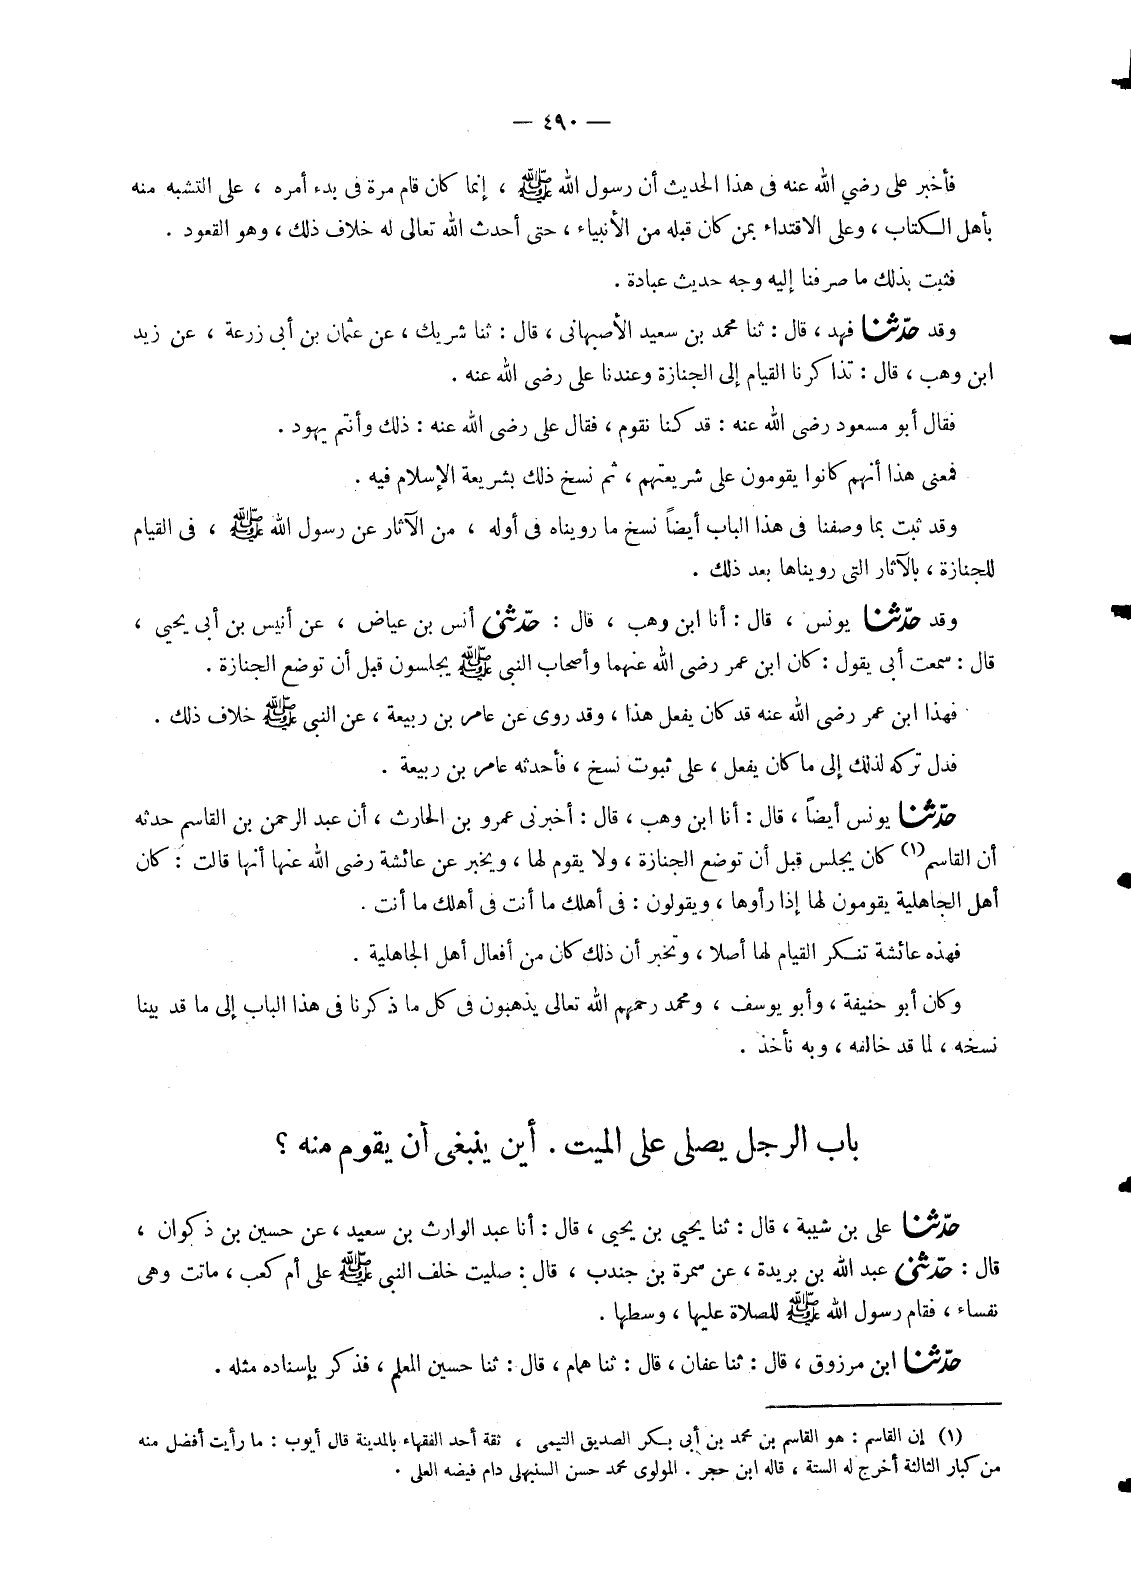 — ٤٩٠ —
فأخبر على رضي الله عنه فى هذا الحديث أن رسول الله ﷺ ، إنما كان قام مرة فى بدء أمره ، على التشبه منه
بأهل الكتاب ، وعلى الاقتداء بمن كان قبله من الأنبياء ، حتى أحدث الله تعالى له خلاف ذلك ، وهو القعود .
فثبت بذلك ما صرفنا إليه وجه حديث عبادة .
وقد حدّثنا فهد ، قال : ثنا محمد بن سعيد الأصبهانى ، قال : ثنا شريك ، عن عثمان بن أبى زرعة ، عن زيد
ابن وهب ، قال : تذاكرنا القيام إلى الجنازة وعندنا على رضى الله عنه .
فقال أبو مسعود رضى الله عنه : قد كنا نقوم ، فقال على رضى الله عنه : ذلك وأنتم يهود .
فمعنى هذا أنهم كانوا يقومون على شريعتهم ، ثم نسخ ذلك بشريعة الإسلام فيه .
وقد ثبت بما وصفنا فى هذا الباب أيضاً نسخ ما رويناه فى أوله ، من الآثار عن رسول الله ﷺ ، فى القيام
للجنازة ، بالآثار التى رويناها بعد ذلك .
وقد حدّثنا يونس ، قال : أنا ابن وهب ، قال : حدّثنى أنس بن عياض ، عن أنيس بن أبى يحيى ،
قال : سمعت أبى يقول : كان ابن عمر رضى الله عنهما وأصحاب النبى ﷺ يجلسون قبل أن توضع الجنازة .
فهذا ابن عمر رضى الله عنه قد كان يفعل هذا ، وقد روى عن عامر بن ربيعة ، عن النبى ﷺ خلاف ذلك .
فدل تركه لذلك إلى ما كان يفعل ، على ثبوت نسخ ، فأحدثه عامر بن ربيعة .
حدّثنا يونس أيضاً ، قال : أنا ابن وهب ، قال : أخبرنى عمرو بن الحارث ، أن عبد الرحمن بن القاسم حدثه
أن القاسم(١) كان يجلس قبل أن توضع الجنازة ، ولا يقوم لها ، ويخبر عن عائشة رضى الله عنها أنها قالت : كان
أهل الجاهلية يقومون لها إذا رأوها ، ويقولون : فى أهلك ما أنت فى أهلك ما أنت .
فهذه عائشة تنكر القيام لها أصلا ، وتخبر أن ذلك كان من أفعال أهل الجاهلية .
وكان أبو حنيفة ، وأبو يوسف ، ومحمد رحمهم الله تعالى يذهبون فى كل ما ذكرنا فى هذا الباب إلى ما قد بينا
نسخه ، لما قد خالفه ، وبه نأخذ .
باب الرجل يصلى على الميت . أين ينبغى أن يقوم منه ؟
حدّثنا على بن شيبة ، قال : ثنا يحيى بن يحيى ، قال : أنا عبد الوارث بن سعيد ، عن حسين بن ذكوان ،
قال : حدّثنى عبد الله بن بريدة ، عن سمرة بن جندب ، قال : صليت خلف النبى ﷺ على أم كعب ، ماتت وهى
نفساء ، فقام رسول الله ﷺ للصلاة عليها ، وسطها .
حدّثنا ابن مرزوق ، قال : ثنا عفان ، قال : ثنا همام ، قال : ثنا حسين المعلم ، فذكر بإسناده مثله .
(١) إن القاسم : هو القاسم بن محمد بن أبى بكر الصديق التيمى ، ثقة أحد الفقهاء بالمدينة قال أيوب : ما رأيت أفضل منه
من كبار الثالثة أخرج له الستة ، قاله ابن حجر . المولوى محمد حسن السنبهلى دام فيضه العلى .